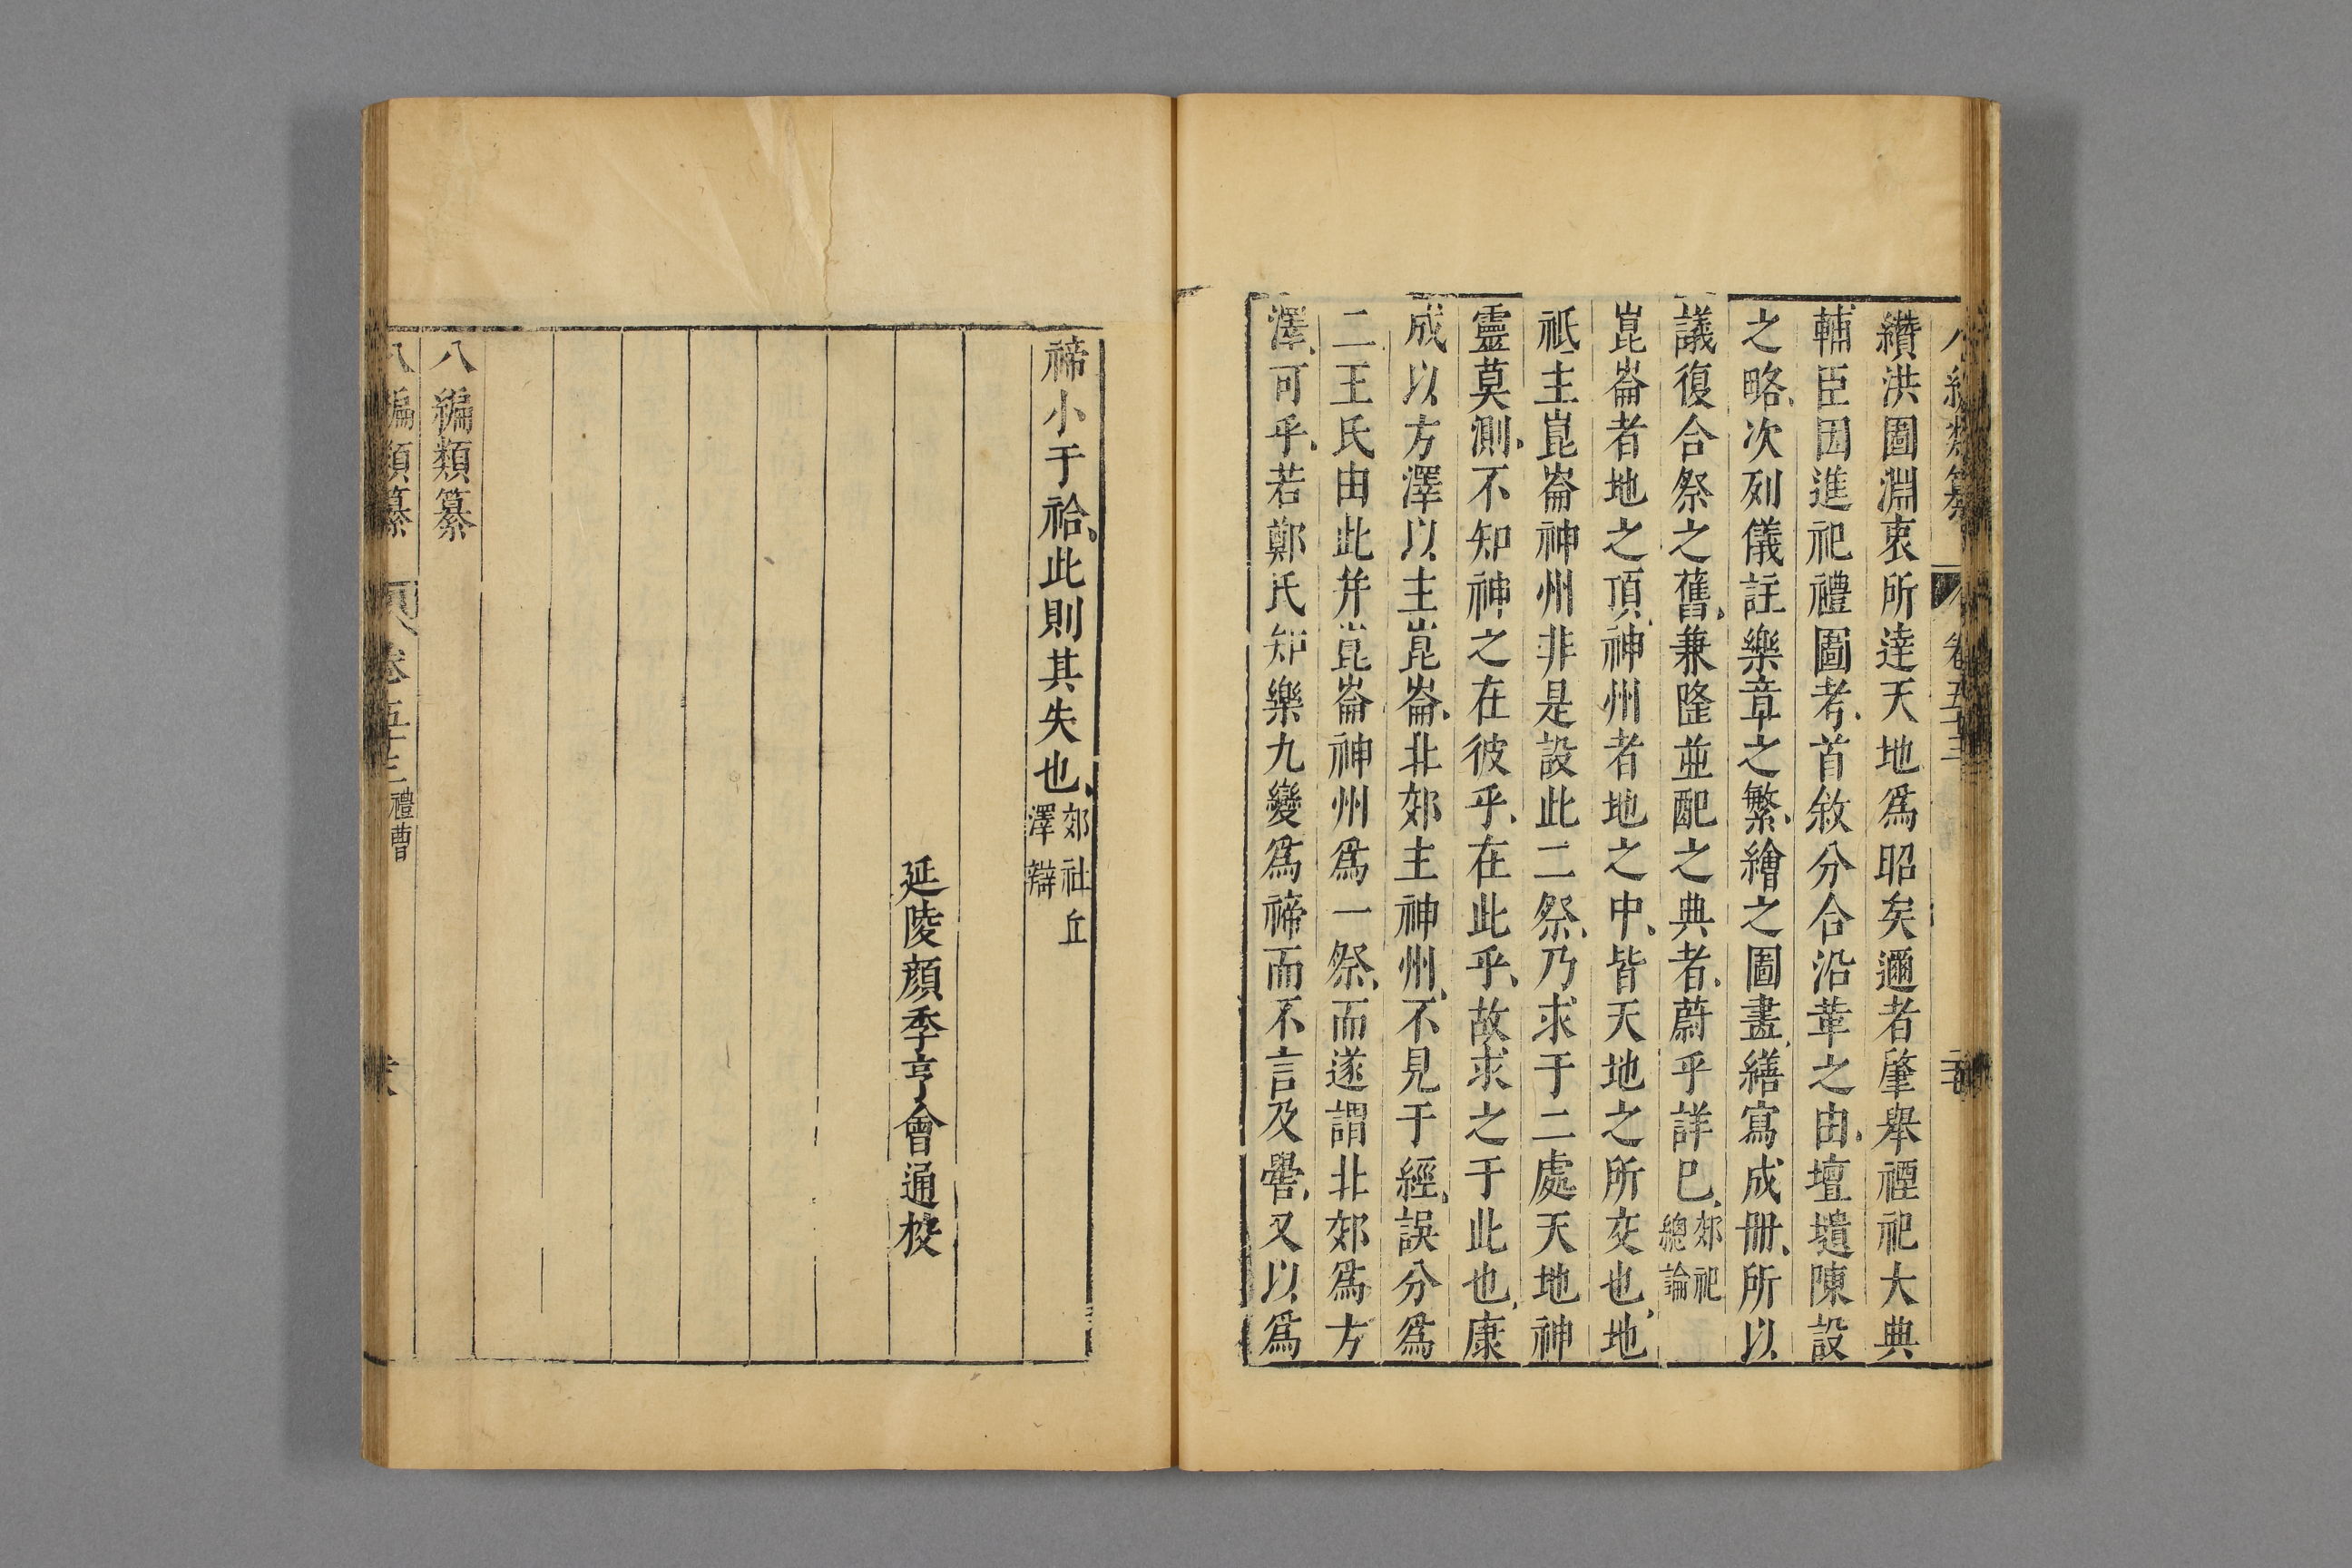 纘洪圖淵衷所達天地爲昭矣邇者肇舉禋祀大典
輔臣因進祀禮圖考首敘分合沿革之由壇壝陳設
之略次列儀註樂章之繁繪之圖畫繕寫成冊所以
議復合祭之舊兼隆並配之典者蔚乎詳已郊祀
總論
崑崙者地之頂神州者地之中皆天地之所交也地
祇主崑崙神州非是設此二祭乃求于二處天地神
靈莫測不知神之在彼乎在此乎故求之于此也康
成以方澤以主崑崙北郊主神州不見于經誤分爲
二王氏由此并崑崙神州爲一祭而遂謂北郊爲方
澤可乎若鄭氏知樂九變爲禘而不言及嚳又以爲
禘小于祫此則其失也郊社丘
澤辯
延陵顏季亨會通校
八編類纂
八編類纂 卷五十三 禮曹